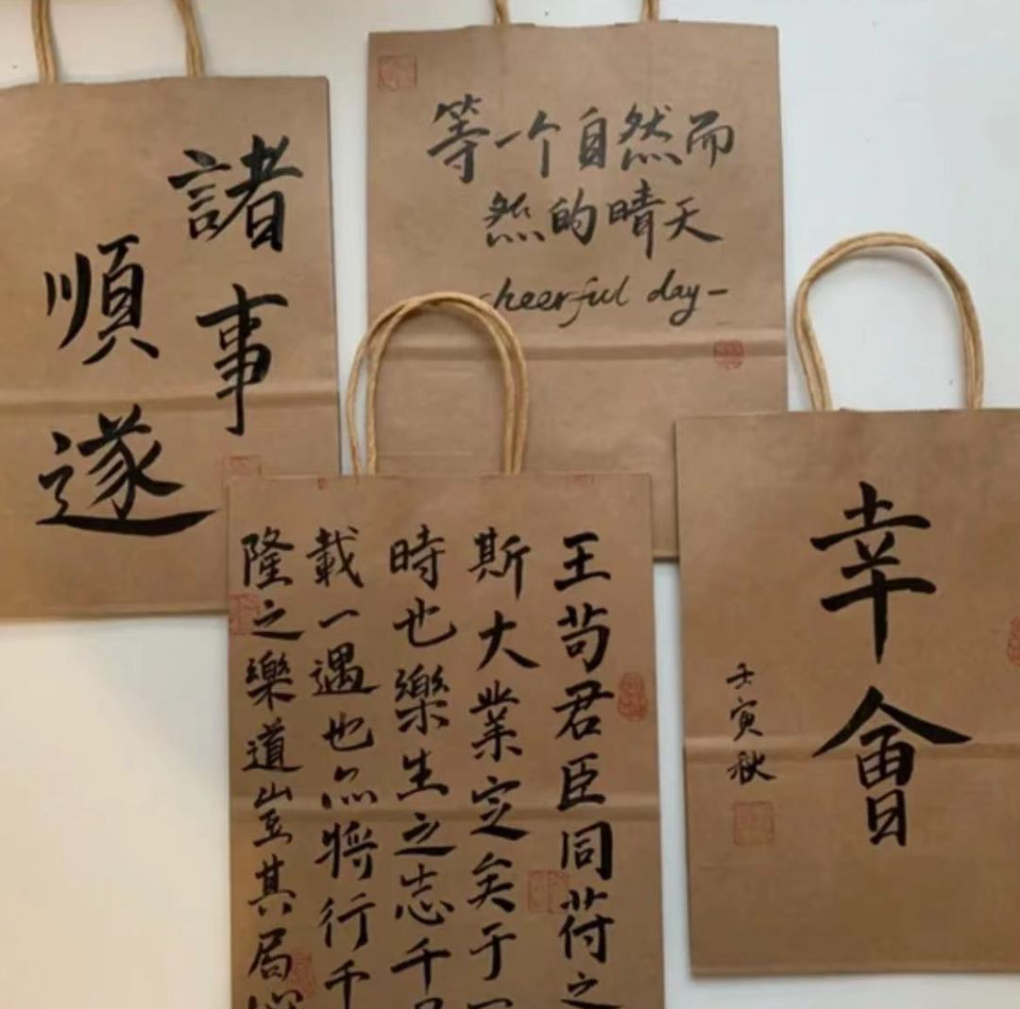 諸事
順遂
等一个自然而
然的晴天
cheerful day-
王苟君臣同苻之
斯大業定矣于
時也樂生之志千
載一遇也亦將行千
隆之樂道豈其局
幸會
壬寅秋